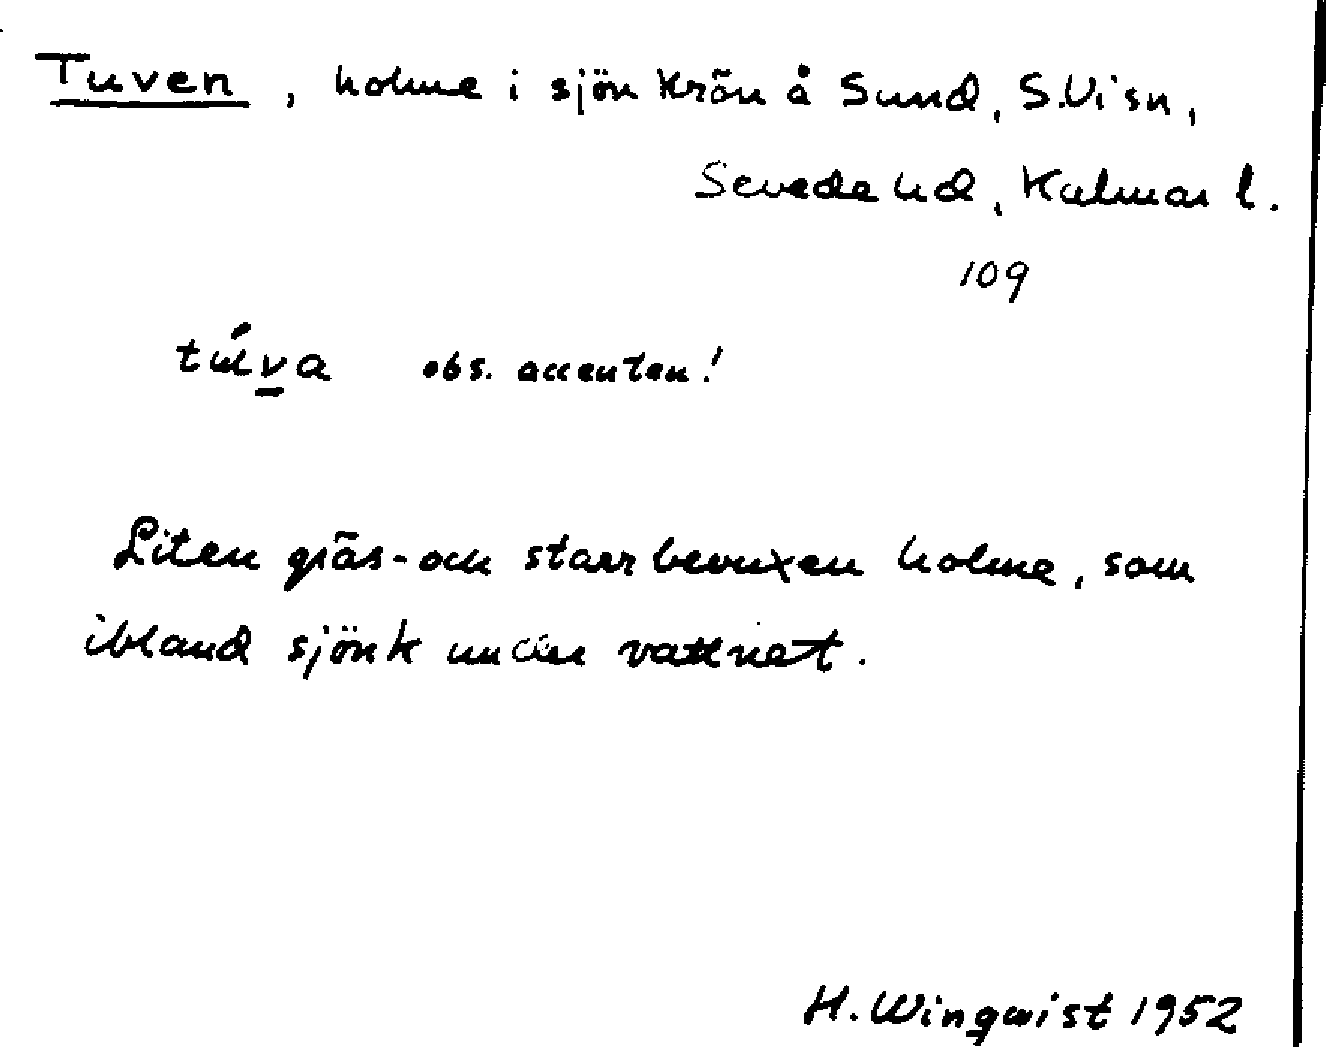 Tuven, holme i sjön Krön å Sund, S.Vi sn,
Sevede hd, Kalmar l.
109
túva obs. accenten!
Liten gräs- och starrbevuxen holme, som
ibland sjönk under vattnet.
H. Winqwist 1952